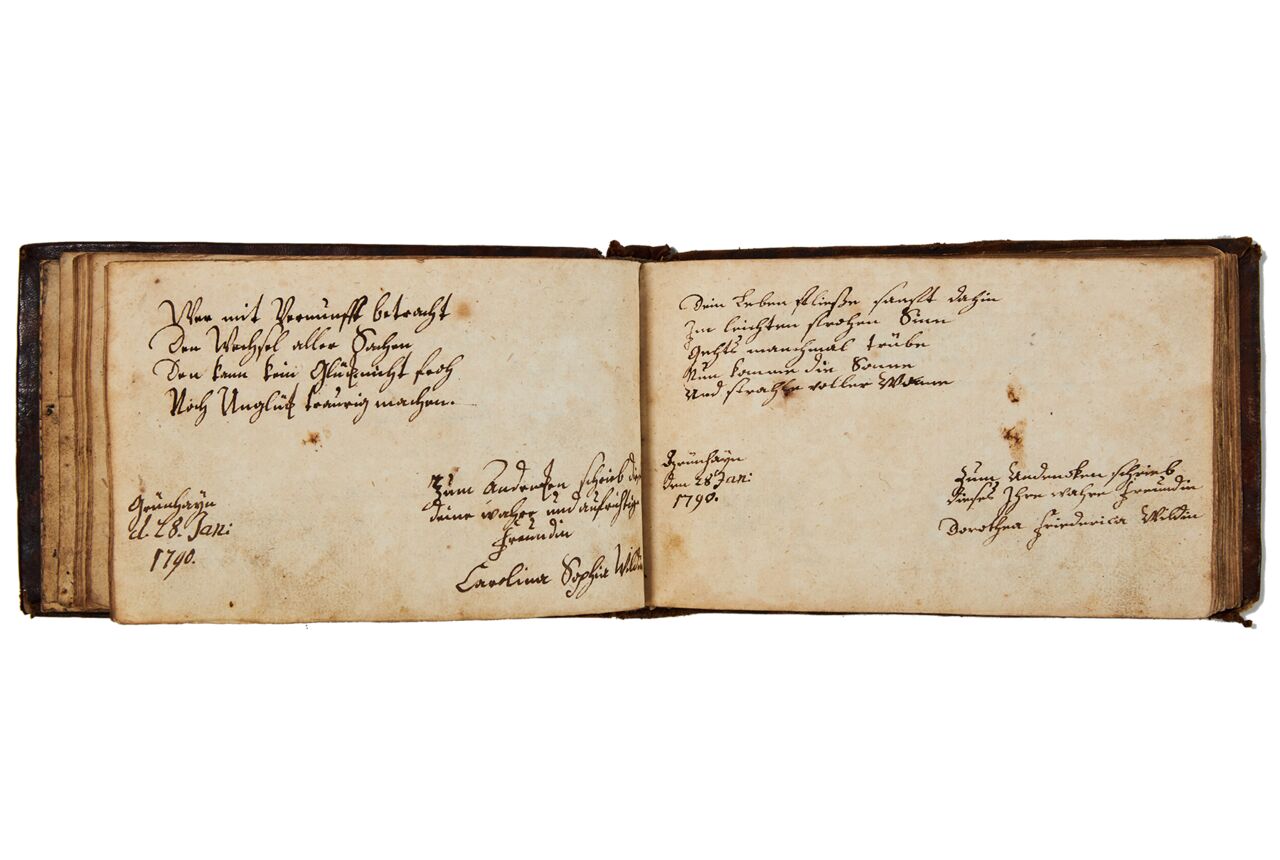 Wer mit Vernunfft betracht
Den Wechsel aller Sachen
Den kann kein Glük nicht froh
Noch Unglük traurig machen.
Grünhayn
d. 28. Jan:
1790.
Zum Andenken schrieb dir
deine wahre und aufrichtige
Freundin
Carolina Sophia Wildin
Dein Leben fließe sanft dahin
Im leichten frohen Sinn
Gehts manchmal trübe
Nun komme die Sonne
Und strahle voller Wonne
Grünhayn
den 28 Jan:
1790.
Zum Andencken schrieb
dieses Ihre wahre Freundin
Dorothea Friederica Wildin